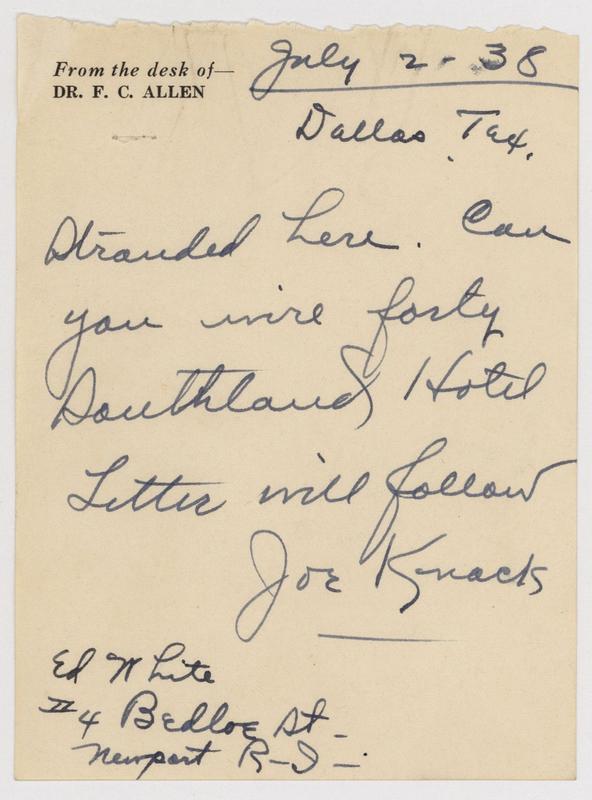 From the desk of—
DR. F. C. ALLEN
July 2 - 38
Dallas, Tex.
Stranded here. Can
you wire forty
Southland Hotel
Letter will follow
Joe Knack
Ed White
#4 Bedloe St -
Newport R-I-.